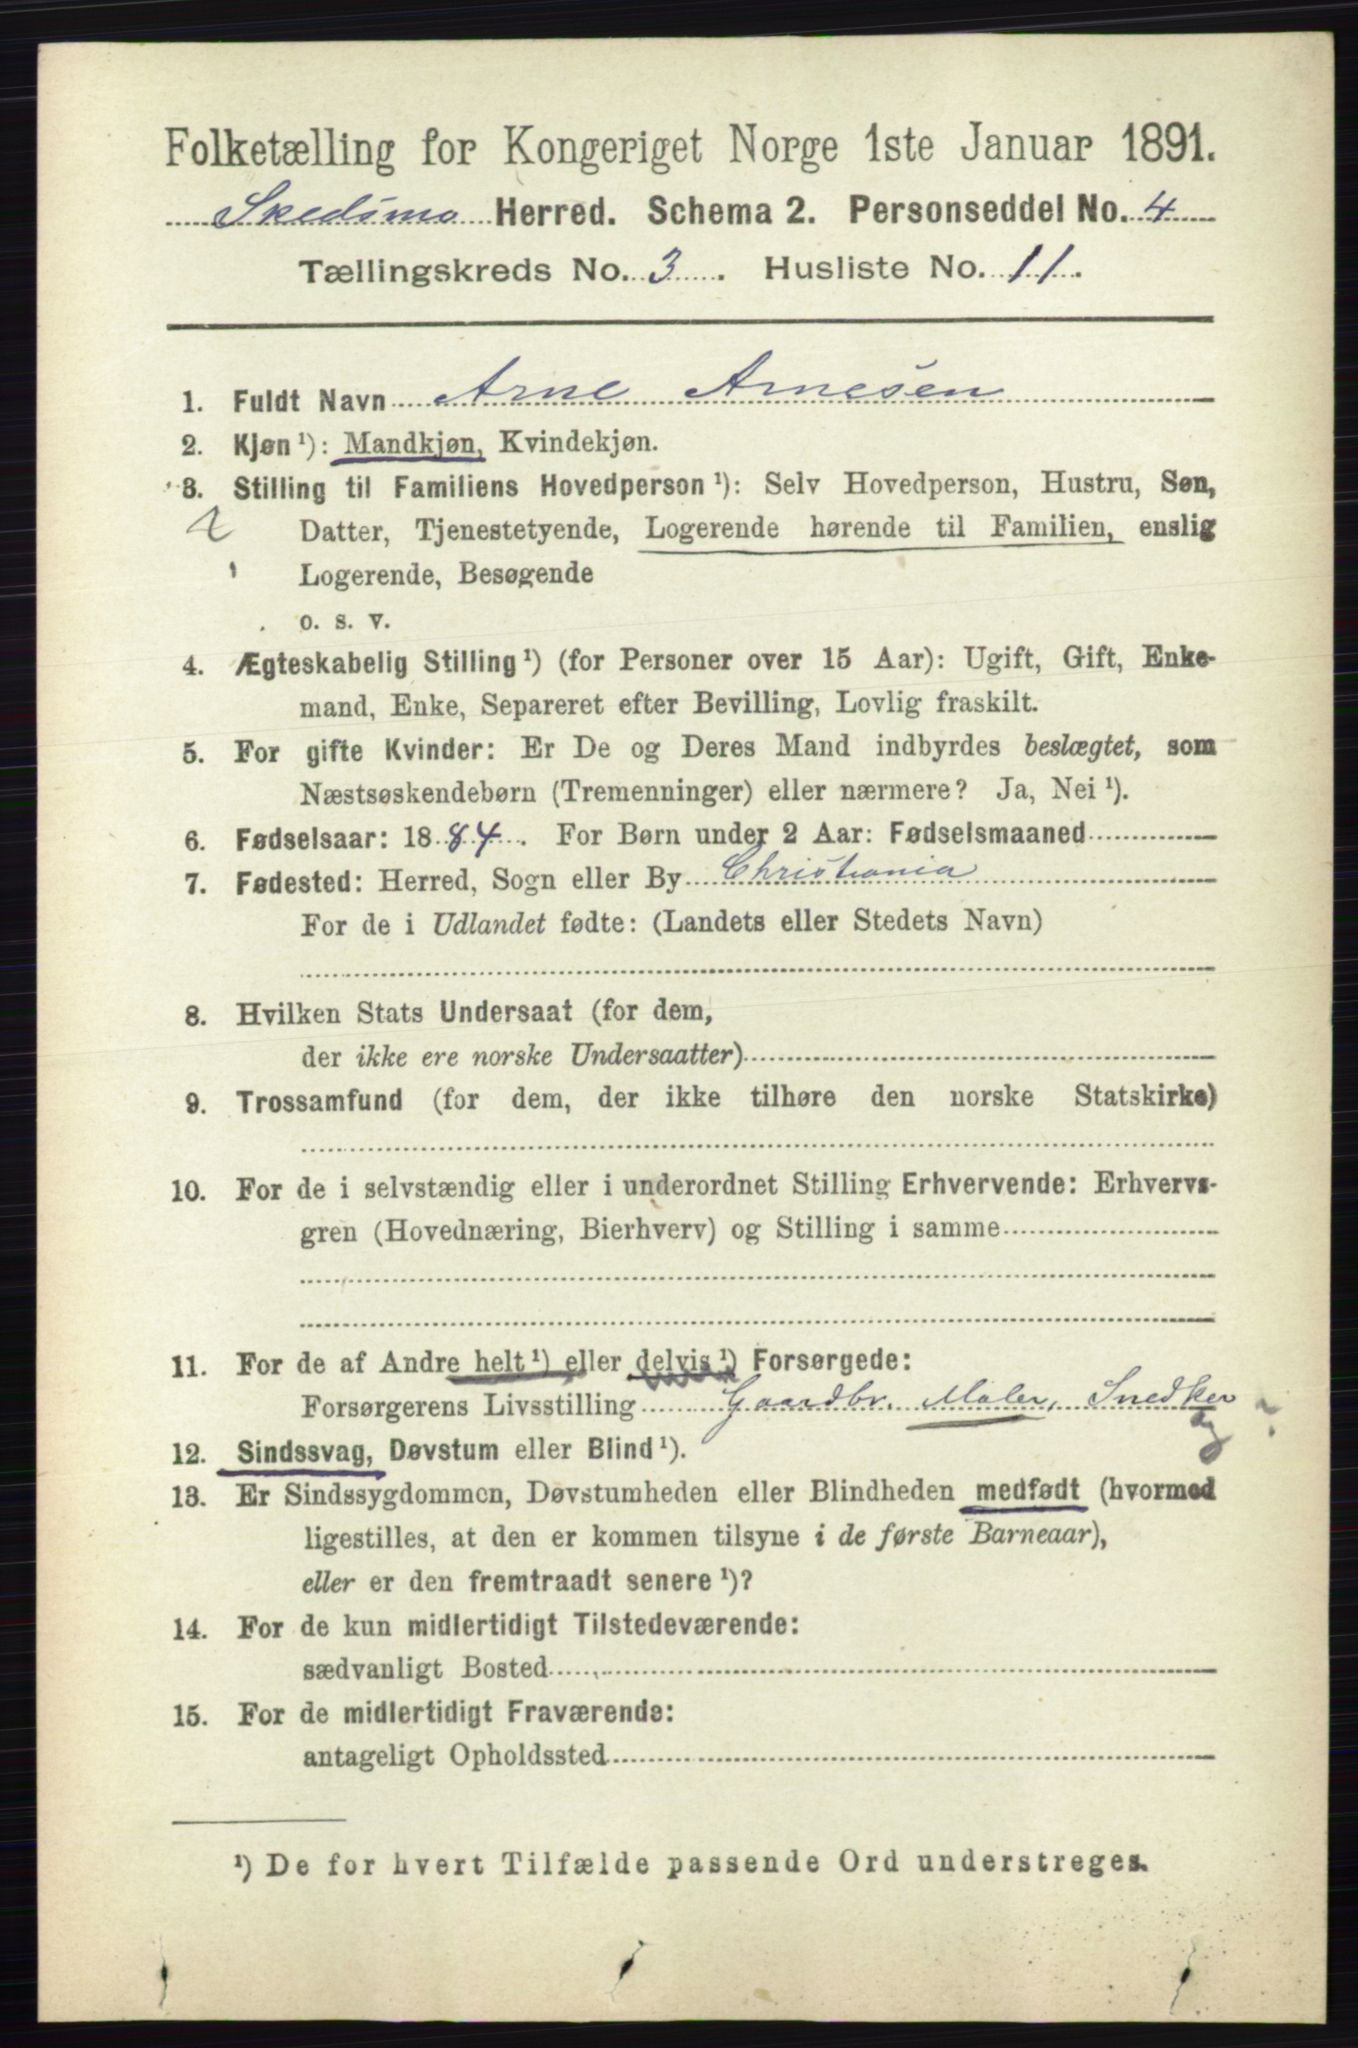 Folketælling for Kongeriget Norge 1ste Januar 1891.
Skedsmo Herred. Schema 2. Personseddel No. 4
Tællingskreds No. 3. Husliste No. 11.
1. Fuldt Navn Arne Arnesen
2. Kjøn ¹): Mandkjøn, Kvindekjøn.
3. Stilling til Familiens Hovedperson ¹): Selv Hovedperson, Hustru, Søn,
Datter, Tjenestetyende, Logerende hørende til Familien, enslig
Logerende, Besøgende
o. s. v.
4. Ægteskabelig Stilling ¹) (for Personer over 15 Aar): Ugift, Gift, Enke-
mand, Enke, Separeret efter Bevilling, Lovlig fraskilt.
5. For gifte Kvinder: Er De og Deres Mand indbyrdes beslægtet, som
Næstsøskendebørn (Tremenninger) eller nærmere? Ja, Nei ¹).
6. Fødselsaar: 1884. For Børn under 2 Aar: Fødselsmaaned
7. Fødested: Herred, Sogn eller By Christiania
For de i Udlandet fødte: (Landets eller Stedets Navn)
8. Hvilken Stats Undersaat (for dem,
der ikke ere norske Undersaatter)
9. Trossamfund (for dem, der ikke tilhøre den norske Statskirke)
10. For de i selvstændig eller i underordnet Stilling Erhvervende: Erhvervs-
gren (Hovednæring, Bierhverv) og Stilling i samme
11. For de af Andre helt ¹) eller delvis ¹) Forsørgede:
Forsørgerens Livsstilling Gaardbr. Maler, Snedker ?
12. Sindssvag, Døvstum eller Blind ¹).
13. Er Sindssygdommen, Døvstumheden eller Blindheden medfødt (hvormed
ligestilles, at den er kommen tilsyne i de første Barneaar),
eller er den fremtraadt senere ¹)?
14. For de kun midlertidigt Tilstedeværende:
sædvanligt Bosted
15. For de midlertidigt Fraværende:
antageligt Opholdssted
¹) De for hvert Tilfælde passende Ord understreges.